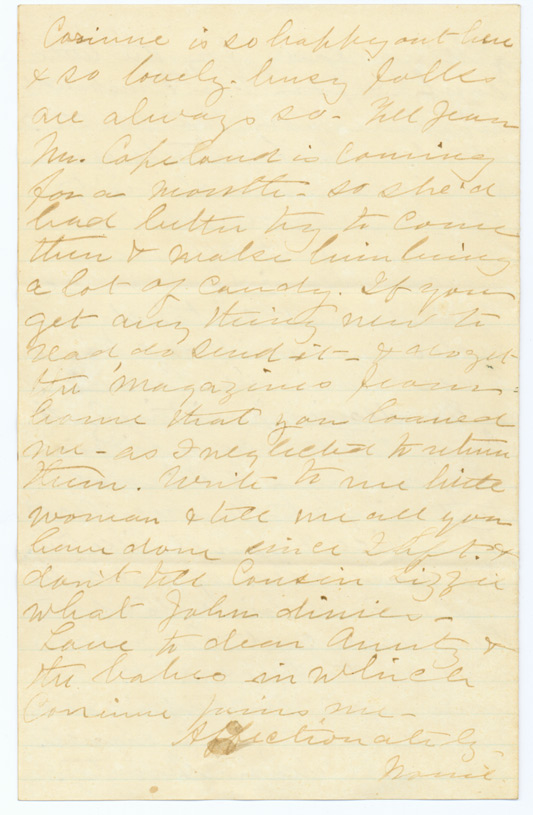 Corinne is so happy out here
& so lovely. busy folks
are always so - Tell Jean
Mr. Copeland is coming
for a month - so she'd
had better try to come
then & make him bring
a lot of candy. If you
get any thing new to
read do send it - & do get
the magazines from
home that you loaned
me - as I neglected to return
them. Write to me little
woman & tell me all you
have done since I left. &
don't tell Cousin Lizzie
what John
Love to dear Aunty &
the babies in which
Corinne joins me -
Affectionately